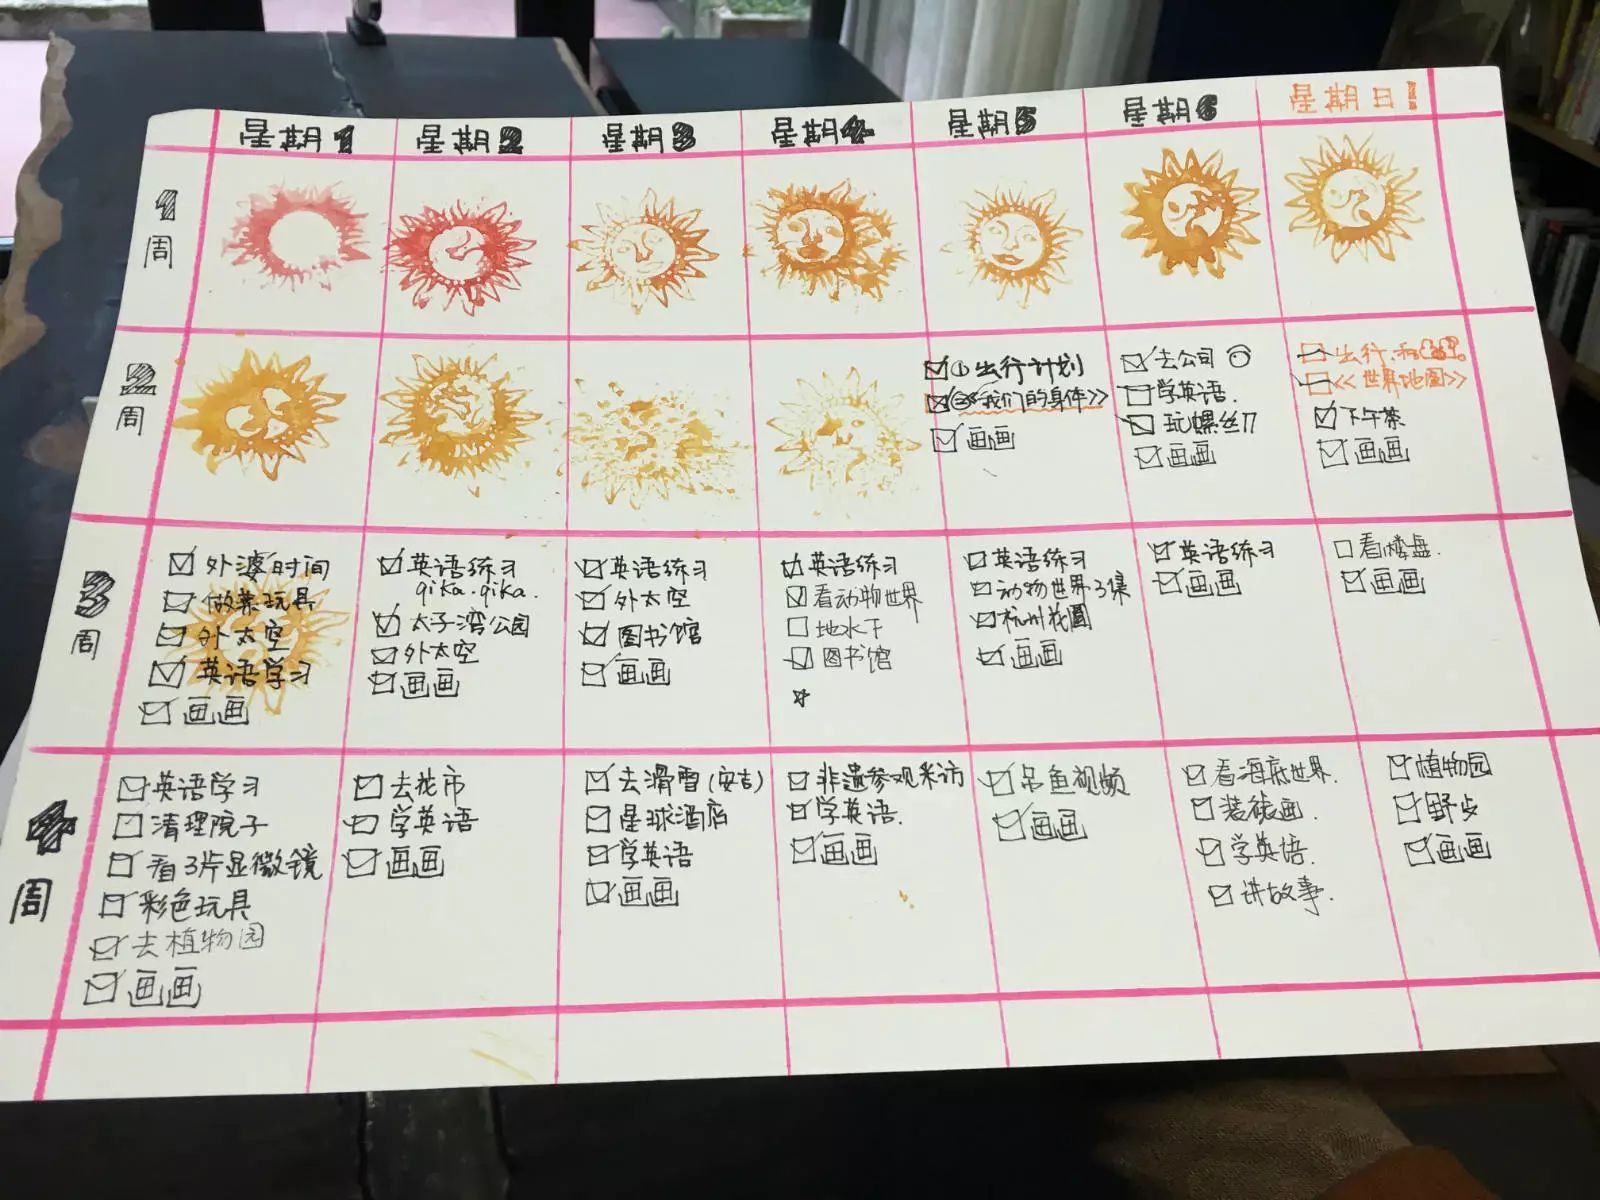 星期1 星期2 星期3 星期4 星期5 星期6 星期日!
1
周
2
周
①出行计划
②《我们的身体》
画画
去公司
学英语.
玩螺丝刀
画画
出行.和
《世界地图》
下午茶
画画
3
周
外婆时间
做菜玩具
外太空
英语学习
画画
英语练习
qika.qika.
太子湾公园
外太空
画画
英语练习
外太空
图书馆
画画
英语练习
看动物世界
地水下
图书馆
英语练习
动物世界3集
杭州花圃
画画
英语练习
画画
看楼盘.
画画
4
周
英语学习
清理院子
看3片显微镜
彩色玩具
去植物园
画画
去花市
学英语
画画
去滑雪(安吉)
星球酒店
学英语
画画
非遗参观采访
学英语.
画画
吊鱼视频
画画
看海底世界.
装裱画.
学英语.
讲故事.
植物园
野步
画画